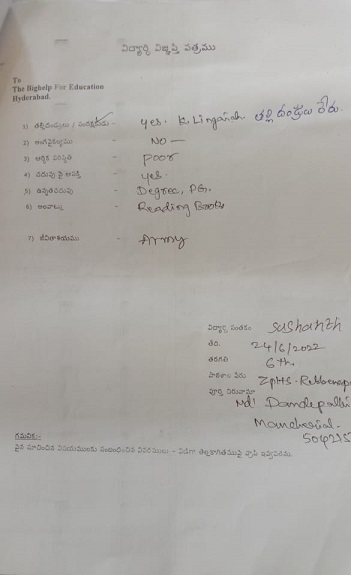 విద్యార్థి విజ్ఞప్తి పత్రము
To
The Bighelp For Education
Hyderabad.
1) తల్లిదండ్రులు / సంరక్షకుడు - yes. K Lingaiah తల్లి దండ్రులు లేరు.
2) అంగవైకల్యము - NO —
3) ఆర్థిక పరిస్థితి - poor
4) చదువు పై ఆసక్తి - yes
5) ఉన్నత చదువు - Degree, PG.
6) అలవాట్లు - Reading Books
7) జీవితాశయము - Army
విద్యార్థి సంతకం sushanth
తేది. 24/6/2022
తరగతి 6th.
పాఠశాల పేరు ZPHS-
పూర్తి చిరునామా
Md! Dandepalli
Mancherial.
504215
గమనిక:-
పైన సూచించిన విషయములకు సంబంధించిన వివరములు - విడిగా తెల్లకాగితముపై వ్రాసి ఇవ్వవలెను.